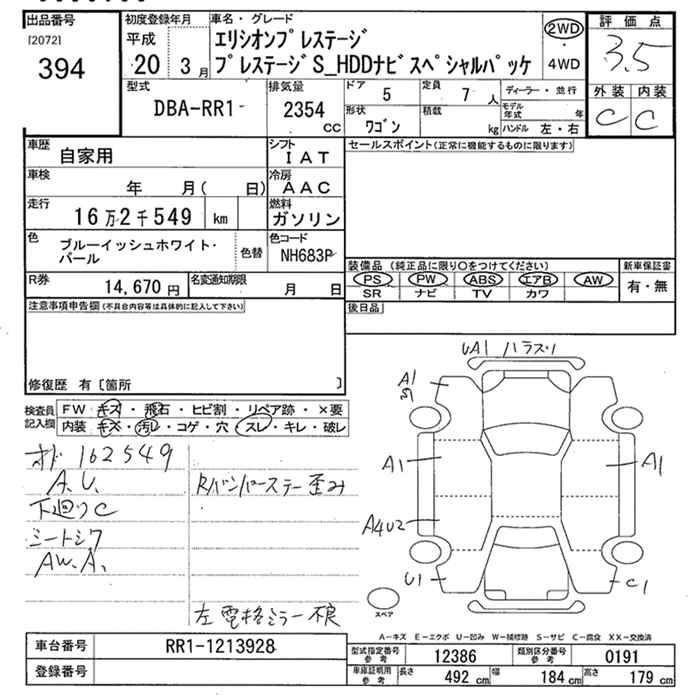 出品番号
[2072]
394
初度登録年月
平成
20 3月
車名・グレード
エリシオンプレステージ
プレステージS_HDDナビスペシャルパッケ
2WD
・
4WD
評価点
3.5
外装 内装
C C
型式
DBA-RR1-
排気量
2354
CC
ドア 5
定員 7 人
ディーラー・並行
形状
ワゴン
積載
kg
モデル年式 年
ハンドル 左・右
車歴 自家用
シフト
IAT
車検 年 月( 日)
冷房
AAC
走行 16万2千549 km
燃料
ガソリン
色 ブルーイッシュホワイト・
パール
色替
色コード
NH683P
R券 14,670円
名変通知期限 月 日
セールスポイント(正常に機能するものに限ります)
装備品(純正品に限り○をつけてください)
PS PW ABS エアB AW
SR ナビ TV カワ
新車保証書
有・無
後日品
注意事項申告欄(不具合内容等は具体的に記入して下さい)
修復歴 有〔箇所 〕
検査員
記入欄
FW キズ・飛石・ヒビ割・リペア跡・×要
内装 キズ・汚レ・コゲ・穴・スレ・キレ・破レ
オド 162549
A.U.
下廻りC
シートシワ
AW.A.
Rバンパーステー歪み
左電格ミラー不良
UA1 ハラスリ
A1
A1
A1
A4U2
U1
C1
スペア
A-キズ E-エクボ U-凹み W-補修跡 S-サビ C-腐食 XX-交換済
車台番号 RR1-1213928
登録番号
型式指定番号
参考
12386
類別区分番号
参考
0191
車庫証明用
参考
長さ 492 cm
幅 184 cm
高さ 179 cm